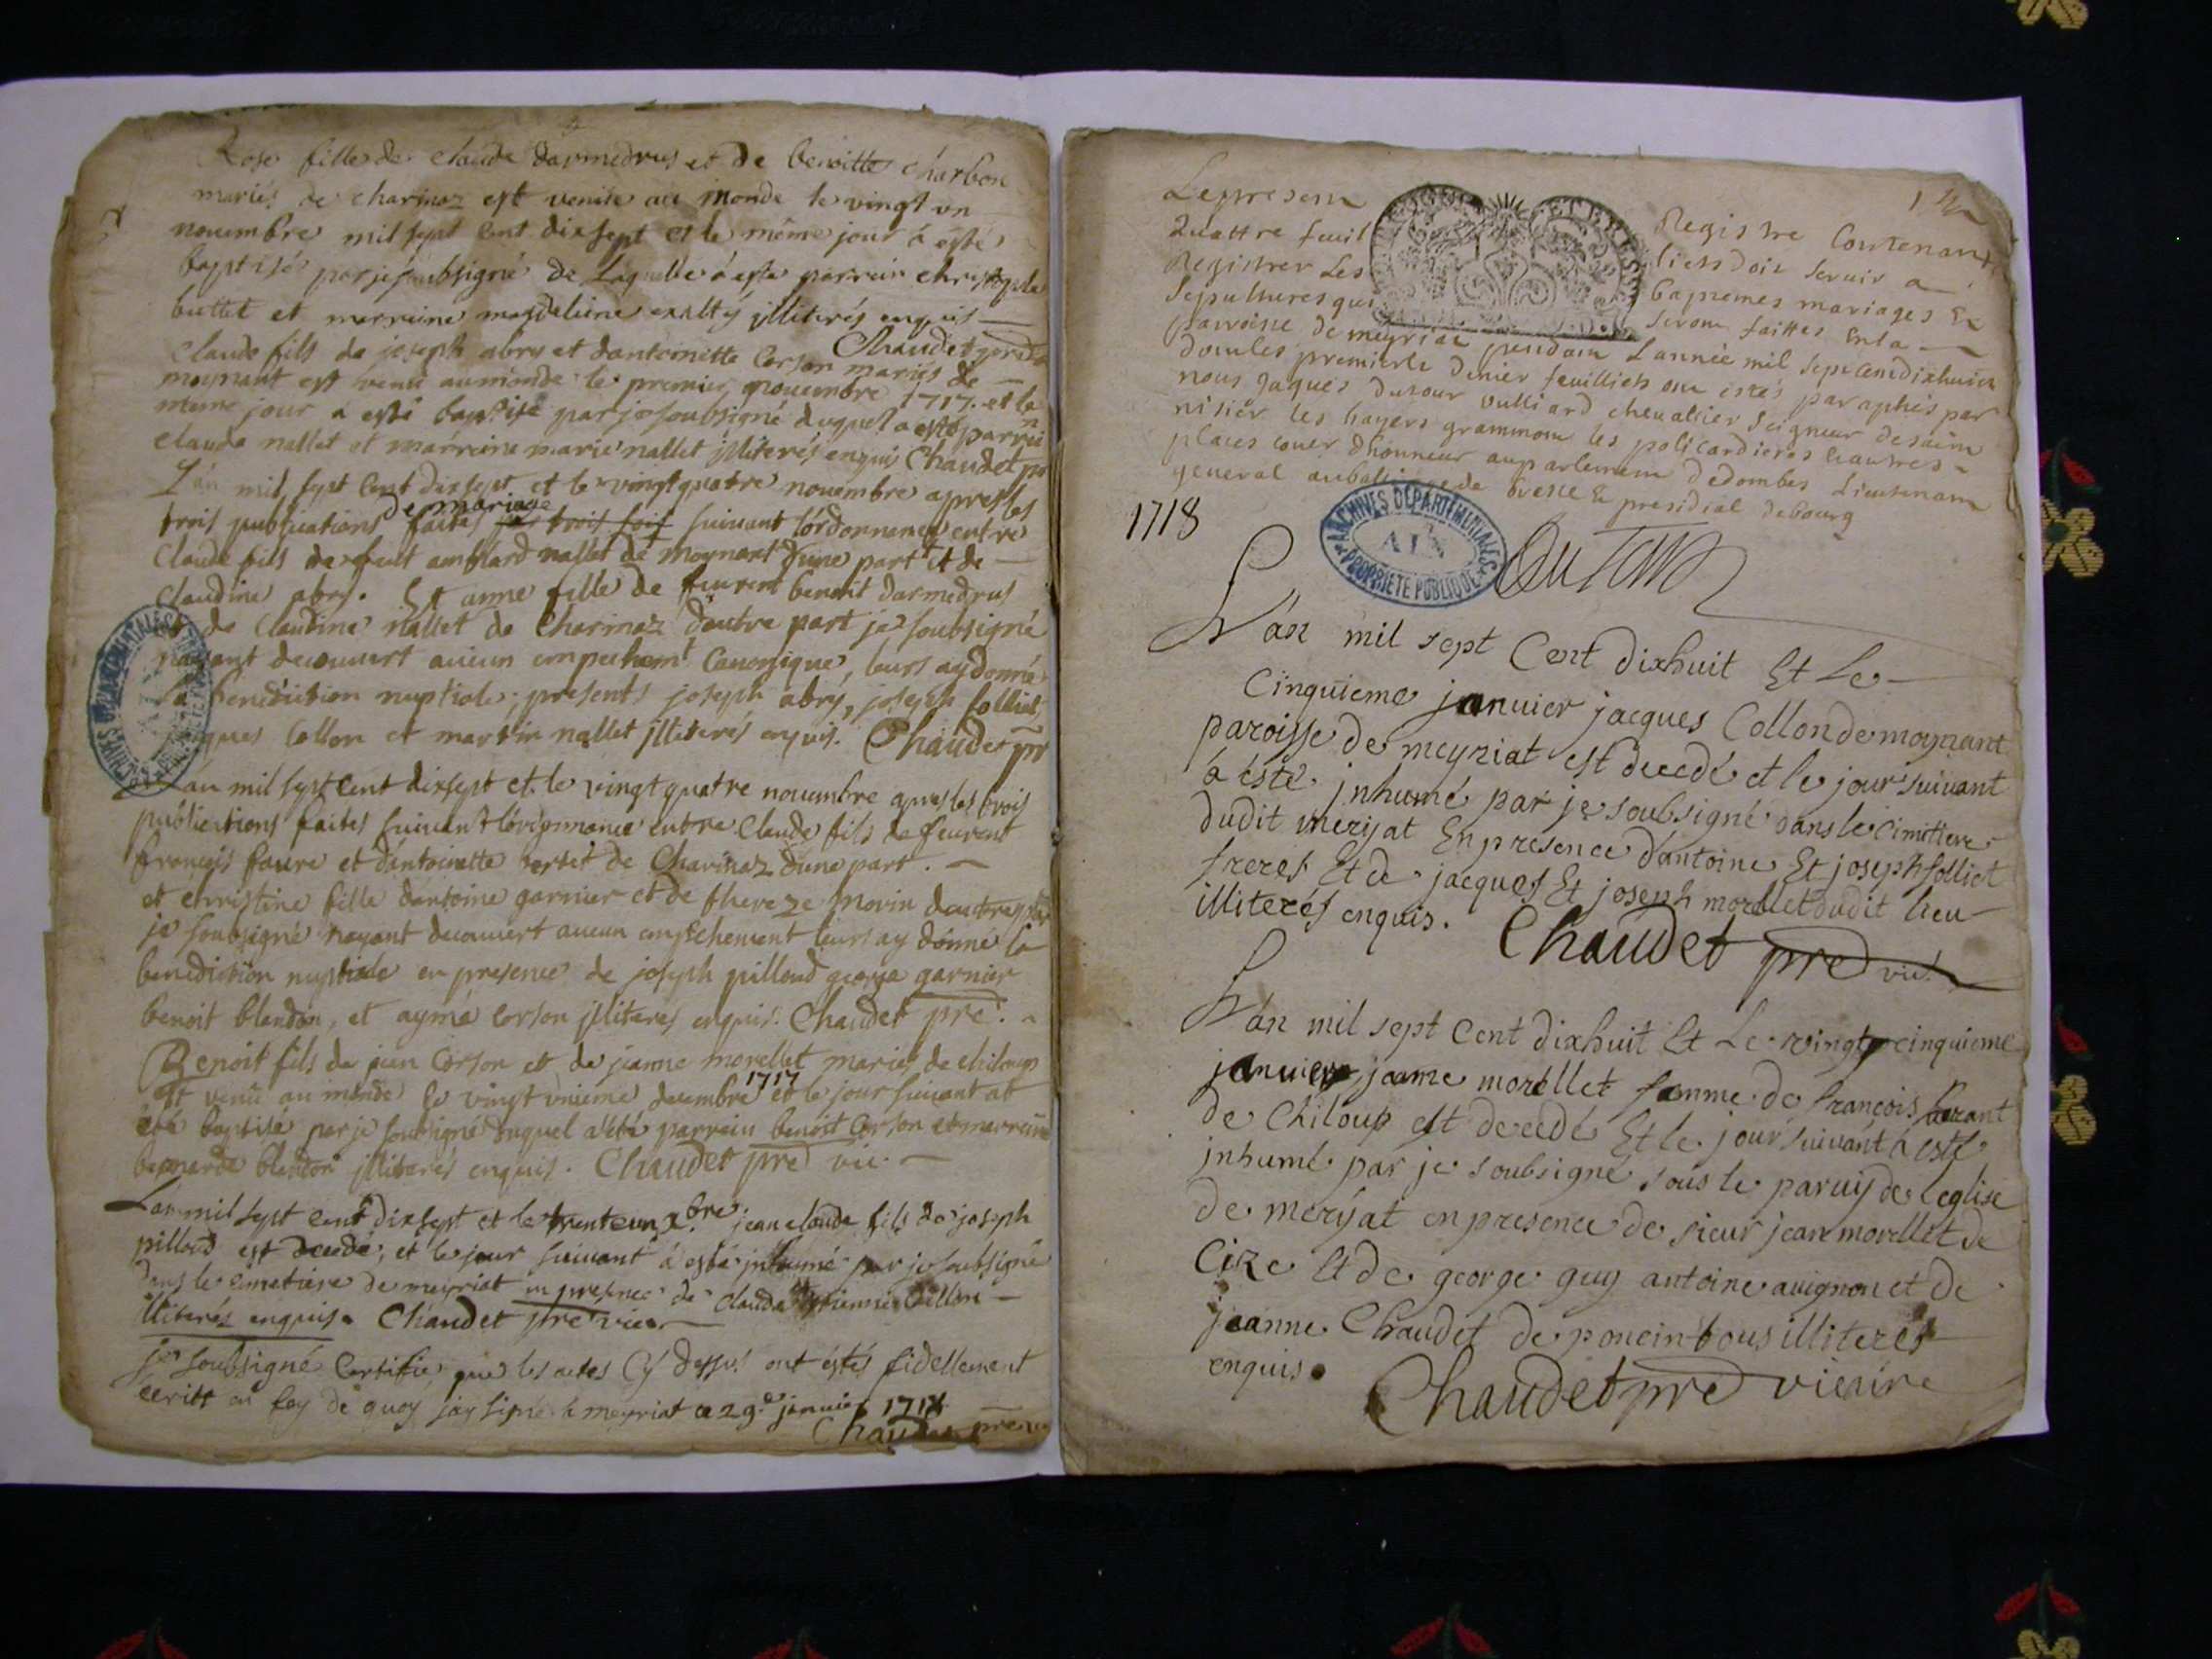 Rose fille de claude darmedrus et de benoitte charbon
mariés de charinaz est venüe au monde le vingt un
nouembre mil sept cent dixsept et le même jour à esté
baptisé par je soubsigné de Laquelle a esté parrain christophle
buttet et marraine magdeleine illiterés enquis
Chaudet
claude fils de joseph abry et dantoinette Corson mariés de
moynant est venu au monde le premier nouembre 1717. et le
même jour a esté baptisé par je soubsigné duquel a esté parrain
claude nallet et marreine marie nallet illiterés enquis Chaudet pr
L'án mil sept cent dixsept et le vingt quatre nouembre apres les
trois publications de mariage faites par trois fois suiuant lórdonnance entre
claude fils de feut amblard nallet de moynant dune part et de
claudine abry. Et anne fille de feurent benoit darmedrus
et de claudine nallet de Charinaz dautre part je soubsigné
nayant decouuert aucun empechemt Canonique, leurs ay donné
la benediction nuptiale, presents joseph abry, joseph folliet
jacques Collon et martin nallet illiterés enquis. Chaudet pr
L'án mil sept cent dixsept et le vingt quatre nouembre apres les trois
publications faites suiuant lórdonnance entre claude fils de feurent
françois faure et dántoinette de Charinaz dune part.
et christine fille dántoine garnier et de thereze morin dautre part
je soubsigné nayant decouuert aucun empéchement leurs ay donné la
benediction nuptiale en presence de joseph pilloud george garnier
benoit blandon, et aymé corson illiteres enquis. Chaudet pre.
Benoit fils de jean Corson et de jeanne morellet mariés de chiloup
est venü au monde le vingt unieme decembre 1717 et le jour suiuant at
été baptisé par je soubsigné duquel a été parrain benoit Corson et marraine
bernarde blandon illiterés enquis. Chaudet pre vic.
L'an mil sept cent dixsept et le trente un xbre. jean claude fils de joseph
pilloud est decedé, et le jour suiuant à esté inhumé par je soubsigné
dans le cimetiere de meyriat en presence de claude Collon
illiterés enquis. Chaudet pre vicar
je soubsigné Certifie que les actes Cy dessus ont éstés fidellement
écrits en foy de quoy jay signé à meyriat ce 29e janvier 1718
Chaudet pre vic
Le present Registre Contenant
Quattre feuilliets doit seruir a
Registrer Les baptemes mariages Et
Sepultures qui seront faittes En la
parroisse de meyriat pendant L'année mil sept cent dixhuict
dont les premier le denier feuilliets ont estés paraphés par
nous jaques dutour vulliard cheuallier Seigneur de saint
nisier les hayers grammont les policardieres Et autres
places Coner dhonneur au parlement de dombes Lieutenant
general au balliage de bresse Et presidial de bourg
1718
ARCHIVES DÉPARTEMENTALES
AIN
PROPRIÉTÉ PUBLIQUE
Dutour
L'án mil sept Cent dixhuit Et Le
Cinquieme januier jacques Collon de moynant
paroisse de meyriat est decedé et le jour suiuant
à éste inhumé par je soubsigné dans le cimittiere
dudit meriyat En presence dántoine Et joseph folliet
freres Et de jacques Et joseph morellet dudit lieu
illiterés enquis. Chaudet pre vic.
L'án mil sept Cent dixhuit Et Le vingt cinquieme
januier jeanne morellet famme de françois
de Chiloup est decedé Et le jour suiuant à esté
inhumé par je soubsigné sous le paruy de l'eglise
de meriyat en presence de sieur jean morellet de
Cize Et de george guy antoine auignon et de
jeanne Chaudet de poncin tous illiterés
enquis.
Chaudet pre vicaire